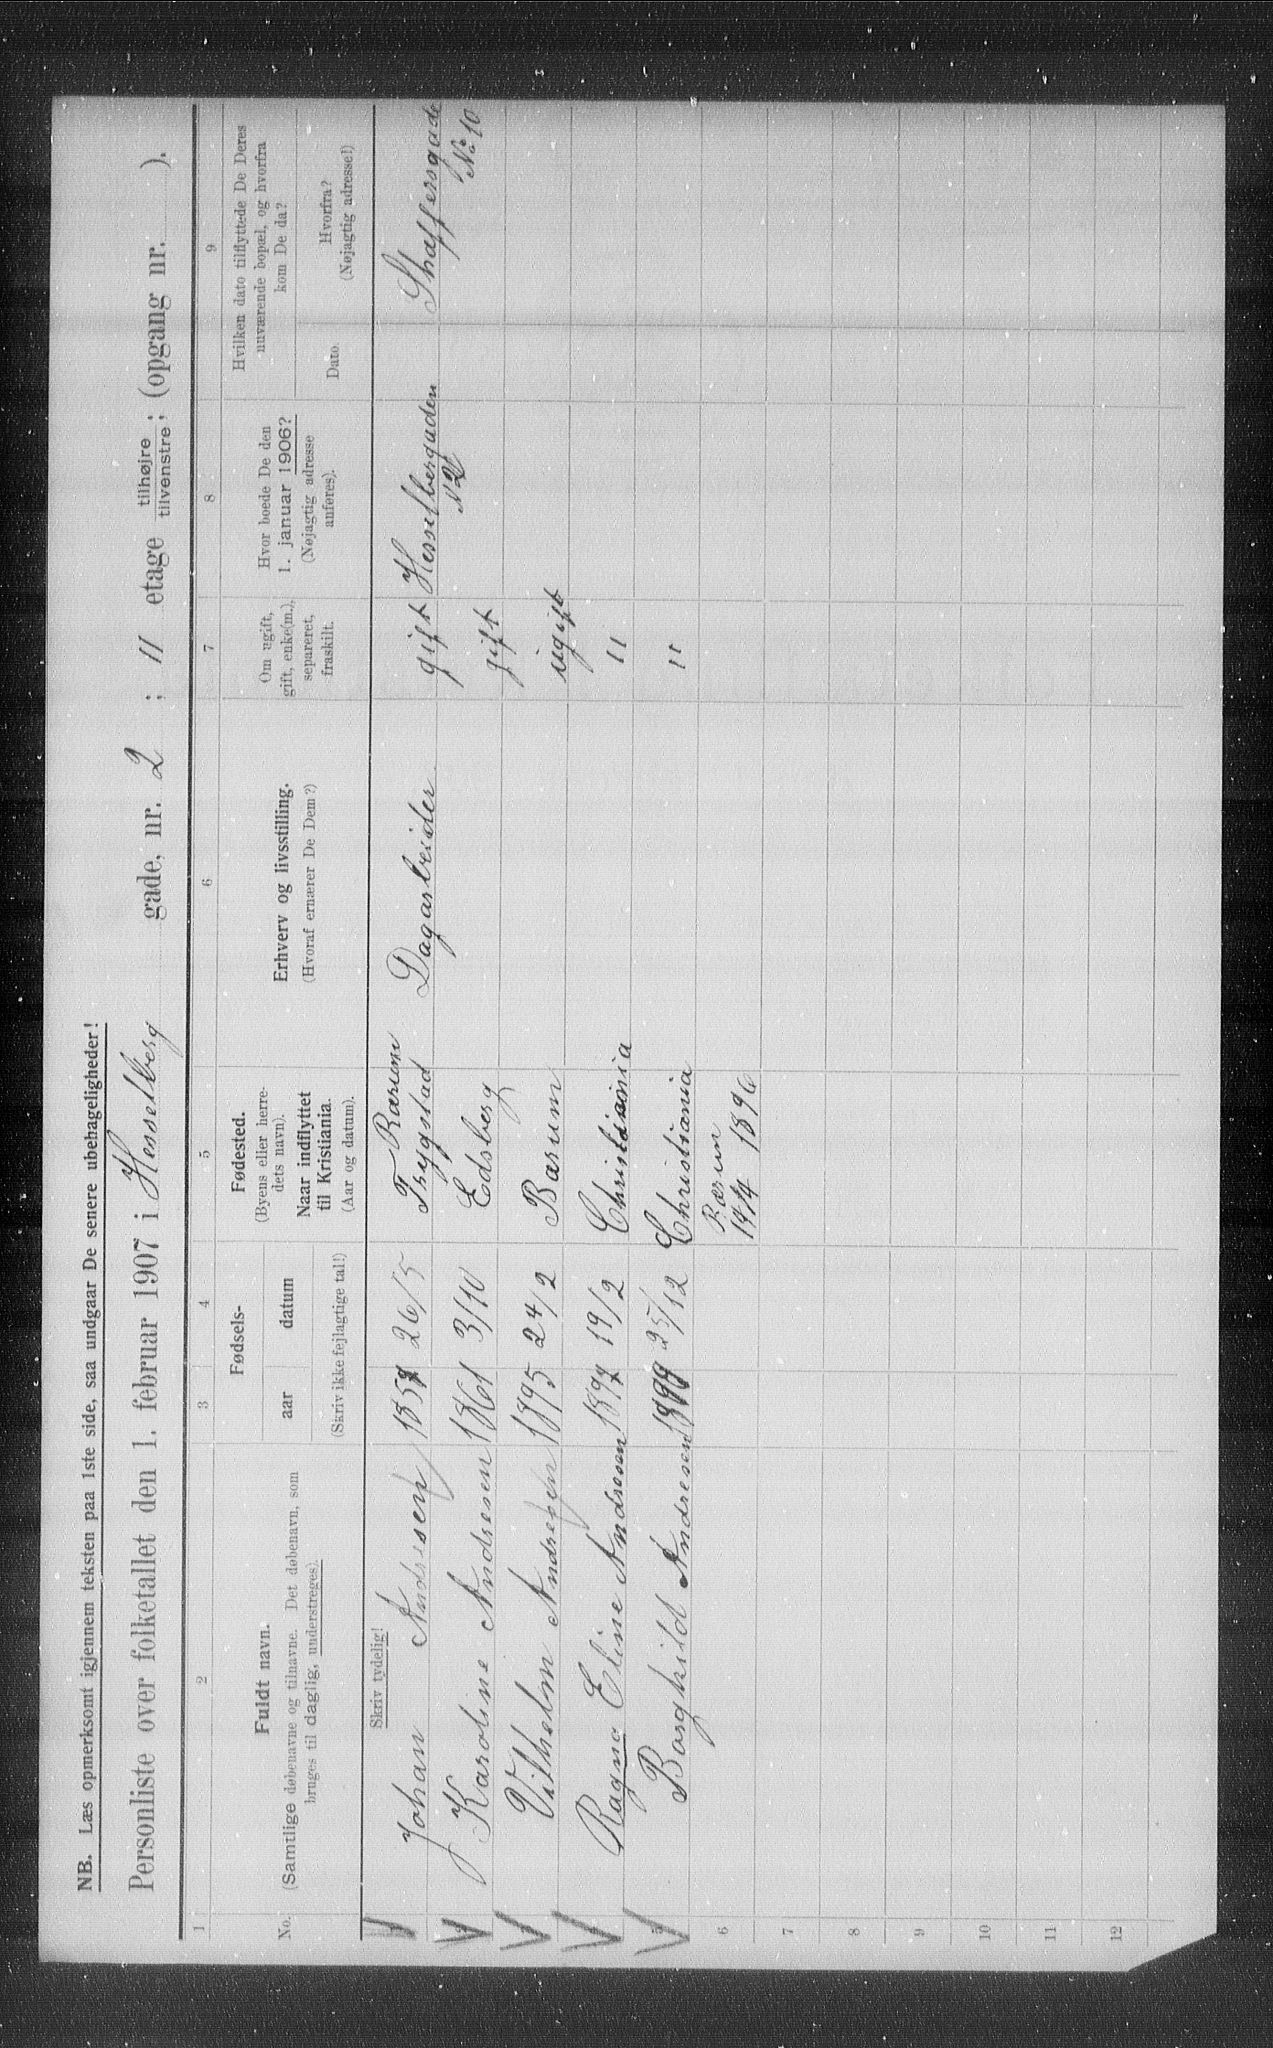 NB. Læs opmerksomt igjennem teksten paa 1ste side, saa undgaar De senere ubehageligheder!
Personliste over folketallet den 1. februar 1907 i Hesselberg gade, nr. 2 ; 11 etage tilhøjre tilvenstre ; (opgang nr. ).
1 2 3 4 5 6 7 8 9
No.
Fuldt navn.
(Samtlige døbenavne og tilnavne. Det døbenavn, som
bruges til daglig, understreges).
Fødsels-
aar datum
(Skriv ikke fejlagtige tal!)
Fødested.
(Byens eller herre-
dets navn).
Naar indflyttet
til Kristiania.
(Aar og datum).
Erhverv og livsstilling.
(Hvoraf ernærer De Dem?)
Om ugift,
gift, enke(m.),
separeret,
fraskilt.
Hvor boede De den
1. januar 1906?
(Nøjagtig adresse
anføres).
Hvilken dato tilflyttede De Deres
nuværende bopæl, og hvorfra
kom De da?
Dato.
Hvorfra?
(Nøjagtig adresse!)
Skriv tydelig!
Bærum
Johan Andresen 1857 26/5 Trygstad Dagarbeider gift Hesselbergaden Shaffersgade
N 2 No 10
Karoline Andresen 1861 3/10 Edsberg gift
Vilhelm Andresen 1895 24/2 Barum ugift
Ragna Eline Andresen 1897 19/2 Christiania "
5 Borghild Andresen 25/12 Christiania "
6 Bærum
14/4 1896
7
8
9
10
11
12